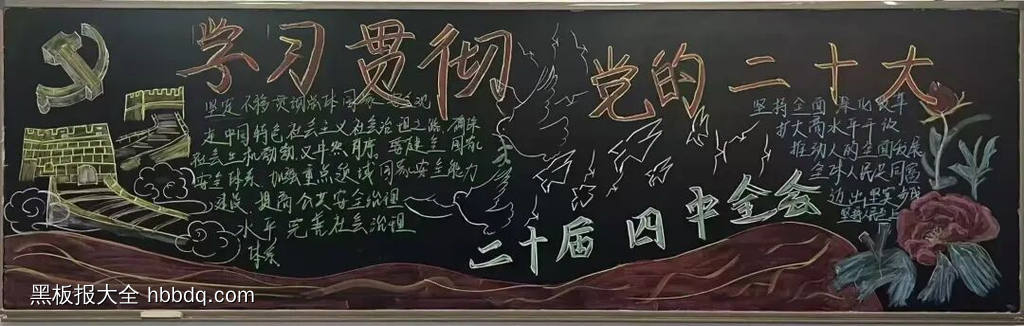 学习贯彻党的二十大
坚定不移贯彻总体国家安全观
走中国特色社会主义社会治理之路 确保
社会生机勃勃又井然有序 推进全国家
安全体系 加强重点领域国家安全能力
建设 提高公共安全治理
水平 完善社会治理
体系
坚持全面深化改革
扩大高水平开放
推动人的全面发展
全体人民共同富
迈出坚实步伐
二十届四中全会
黑板报大全 hbbdq.com